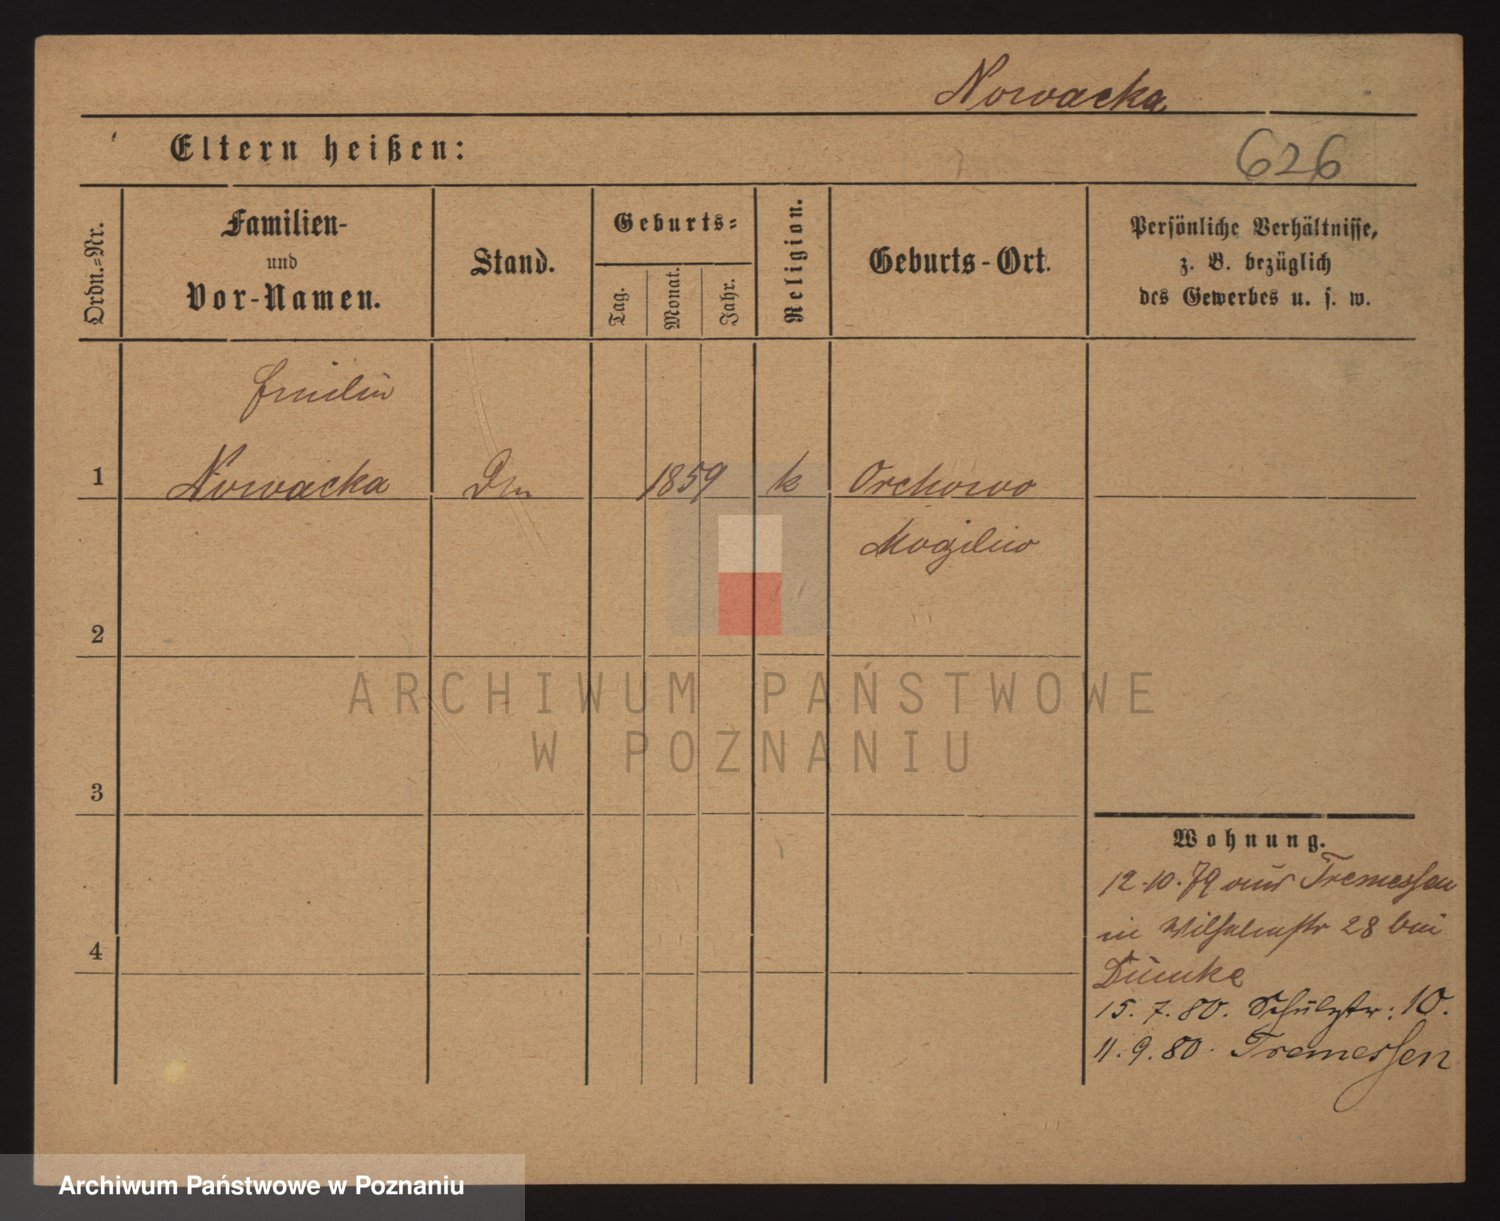 Nowacka
Eltern heißen:
626
Ordn.=Nr.
Familien-
und
Vor-Namen.
Stand.
Geburts=
Tag.
Monat.
Jahr.
Religion.
Geburts-Ort.
Persönliche Verhältnisse,
z. B. bezüglich
des Gewerbes u. s. w.
Emilie
1 Nowacka 1859 k Orchowo
Mogilno
2
ARCHIWUM PAŃSTWOWE
W POZNANIU
3
Wohnung.
12.10.79 aus Tremessen
in Wilhelmstr 28 bei
Dümke
4
15. 7. 80. Schulzstr: 10.
11. 9. 80. Tremessen
Archiwum Państwowe w Poznaniu